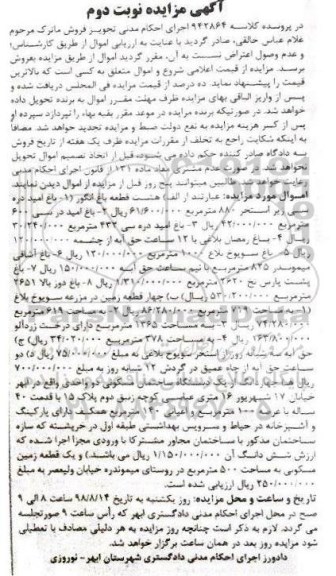 آگهی مزایده نوبت دوم
در پرونده کلاسه ۹۴۲۸۶۴ اجرای احکام مدنی تجویز فروش ماترک مرحوم
غلام عباس خالقی، صادر گردید با عنایت به ارزیابی اموال از طریق کارشناس؛
و عدم وصول اعتراض نسبت به آن، مقرر گردید اموال از طریق مزایده بفروش
برسد. مزایده از قیمت اعلامی شروع و اموال متعلق به کسی است که بالاترین
قیمت را پیشنهاد نماید. ده درصد از قیمت مزایده فی المجلس دریافت شده و
پس از واریز الباقی بهای مزایده ظرف مهلت مقرر اموال به برنده تحویل داده
خواهد شد. در صورتیکه برنده مزایده در موعد مقرر بقیه بهاء را نپردازد سپرده او
پس از کسر هزینه مزایده به نفع دولت ضبط و مزایده تجدید خواهد شد. مضافا
به اینکه شکایت راجع به تخلف از مقررات مزایده ظرف یک هفته از تاریخ فروش
به دادگاه صادر کننده حکم داده می شود، قبل از اتخاذ تصمیم اموال تحویل
نخواهد شد در صورت عدم مشتری مفاد ماده ۱۳۱ از قانون اجرای احکام مدنی
رعایت خواهد شد. طالبین میتوانند پنج روز قبل از مزایده از اموال دیدن نمایند.
اموال مورد مزایده: عبارتند از الف هشت قطعه باغ انگور (۱- باغ امید دره
زیر استخر ۸۸۰ مترمربع ۶۱/۶۰۰/۰۰۰ ریال ۲- باغ امید در سی ۶۰۰
مترمربع ۴۲/۰۰۰/۰۰۰ ریال ۳- باغ امید دره سی ۴۳۲ مترمربع ۳۰/۲۴۰/۰۰۰
ریال ۴- باغ رمضان بلاغی با ۱۲ ساعت حق آبه از چشمه
ریال ۵- باغ سویوخ بلاغ ۱۰۰۰ مترمربع ۱۲۰/۰۰۰/۰۰۰ ریال ۶- باغ آشاقی
میموندر ۸۲۵ مترمربع با نیم ساعت حق آبه ۱۵۰/۰۰۰/۰۰۰ ریال ۷- باغ
پشت پارس نخ ۲۶۲۰ مترمربع ریال ۸- باغ دور بالا ۲۶۵۱
مترمربع ریال) ب) چهار قطعه زمین در مزرعه سویوخ بلاغ
(۱- به مساحت مترمربع ریال ۲- به مساحت ۶۱۸ مترمربع
ریال ۳- به مساحت ۱۳۶۵ مترمربع دارای درخت زردآلو
ریال ۴- به مساحت ۳۷۸ مترمربع ۳۴/۰۲۰/۰۰۰ ریال) ج)
حق آبه سه ساله روزی از استخر سویوخ بلاغی به مبلغ ۷۵/۰۰۰/۰۰۰ ریال د) دو
ساعت حق آبه از چاه عمیق در گردش ۱۲ شبانه روز به مبلغ ۷۰۰/۰۰۰/۰۰۰
یک دستگاه ساختمان مسکونی دو واحدی واقع در ابهر
خیابان ۱۷ شهریور ۱۶ متری عباسی کوچه زنبق دوم پلاک ۱۵ با قدمت ۴۰
ساله با عرصه ۱۰۰ مترمربع و اعیانی ۱۴۰ مترمربع همکف دارای پارکینگ
و آشپزخانه در حیاط و سرویس بهداشتی طبقه اول در خرپشته که سازه
ساختمان مذکور با ساختمان مجاور مشترکا با ورودی مجزا اجرا شده که
ارزش شش دانگ آن ۱/۱۵۰/۰۰۰/۰۰۰ ریال می باشند) و یک قطعه زمین
مسکونی به مساحت ۵۰۰ مترمربع در روستای میموندره خیابان ولیعصر به مبلغ
۲۵۰/۰۰۰/۰۰۰ ریال ارزیابی شده است.
تاریخ و ساعت و محل مزایده: روز یکشنبه به تاریخ ۹۸/۸/۱۴ ساعت ۸ الی ۹
صبح در محل اجرای احکام مدنی دادگستری ابهر که رأس ساعت ۹ صورتجلسه
می گردد. لازم به ذکر است چنانچه روز مزایده به هر دلیلی مصادف با تعطیلی
شود مزایده روز بعد در همان ساعت برگزار خواهد شد.
دادورز اجرای احکام مدنی دادگستری شهرستان ابهر- نوروزی